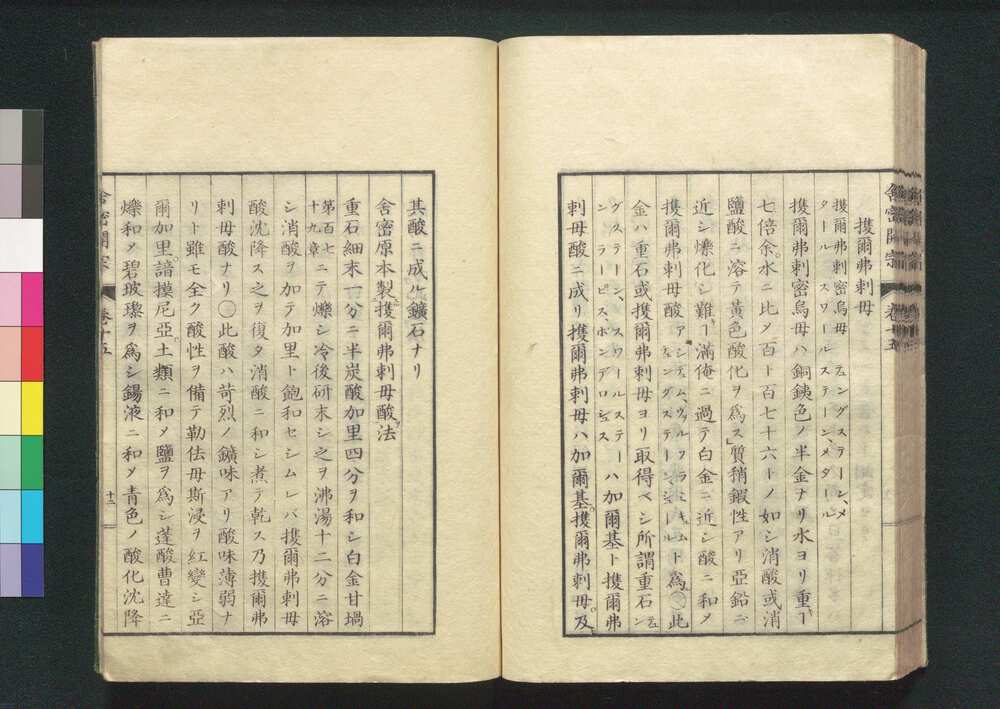 舍密開宗 巻十五
擭爾弗剌毋
擭爾弗剌密烏毋 ヱングステーン、メタール、スワールステーン、メタール
擭爾弗剌密烏毋ハ銅銕色ノ半金ナリ水ヨリ重ー
七倍余水ニ比メ百ト百七十六トノ如シ消酸或消
鹽酸ニ溶テ黄色酸化ヲ為ス質稍鍜性アリ亜鉛ニ
近シ爍化シ難ー滿俺ニ過テ白金ニ近シ酸ニ和メ
擭爾弗剌毋酸 トヲ為○此
金ハ重石或擭爾弗剌毋ヨリ取得ベシ所謂重石
グステーン、スワールステーン、ラーピス、ポンデロシュス ハ加爾基ト擭爾弗
剌毋酸ニ成リ擭爾弗剌毋ハ加爾基擭爾弗剌毋及
其酸ニ成ル鑛石ナリ
舍密原本製擭爾弗剌毋酸法
重石細末一分ニ半炭酸加里四分ヲ和シ白金甘堝
第百七十九章ニテ爍シ冷後研末シ之ヲ沸湯十二分ニ溶
シ消酸ヲ加テ加里ト飽和セシムレバ擭爾弗剌毋
酸沈降ス之ヲ復タ消酸ニ和シ煮テ乾ス乃擭爾弗
剌毋酸ナリ○此酸ハ苛烈ノ鑛味アリ酸味薄弱ナ
リト雖モ全ク酸性ヲ備テ勒佉毋斯浸ヲ紅變シ亜
爾加里諳摸尼亞土類ニ和メ鹽ヲ為シ蓬酸曹達ニ
爍和メ碧玻瓈ヲ為シ錫液ニ和メ青色ノ酸化沈降
舍密開宗 巻十五 十二